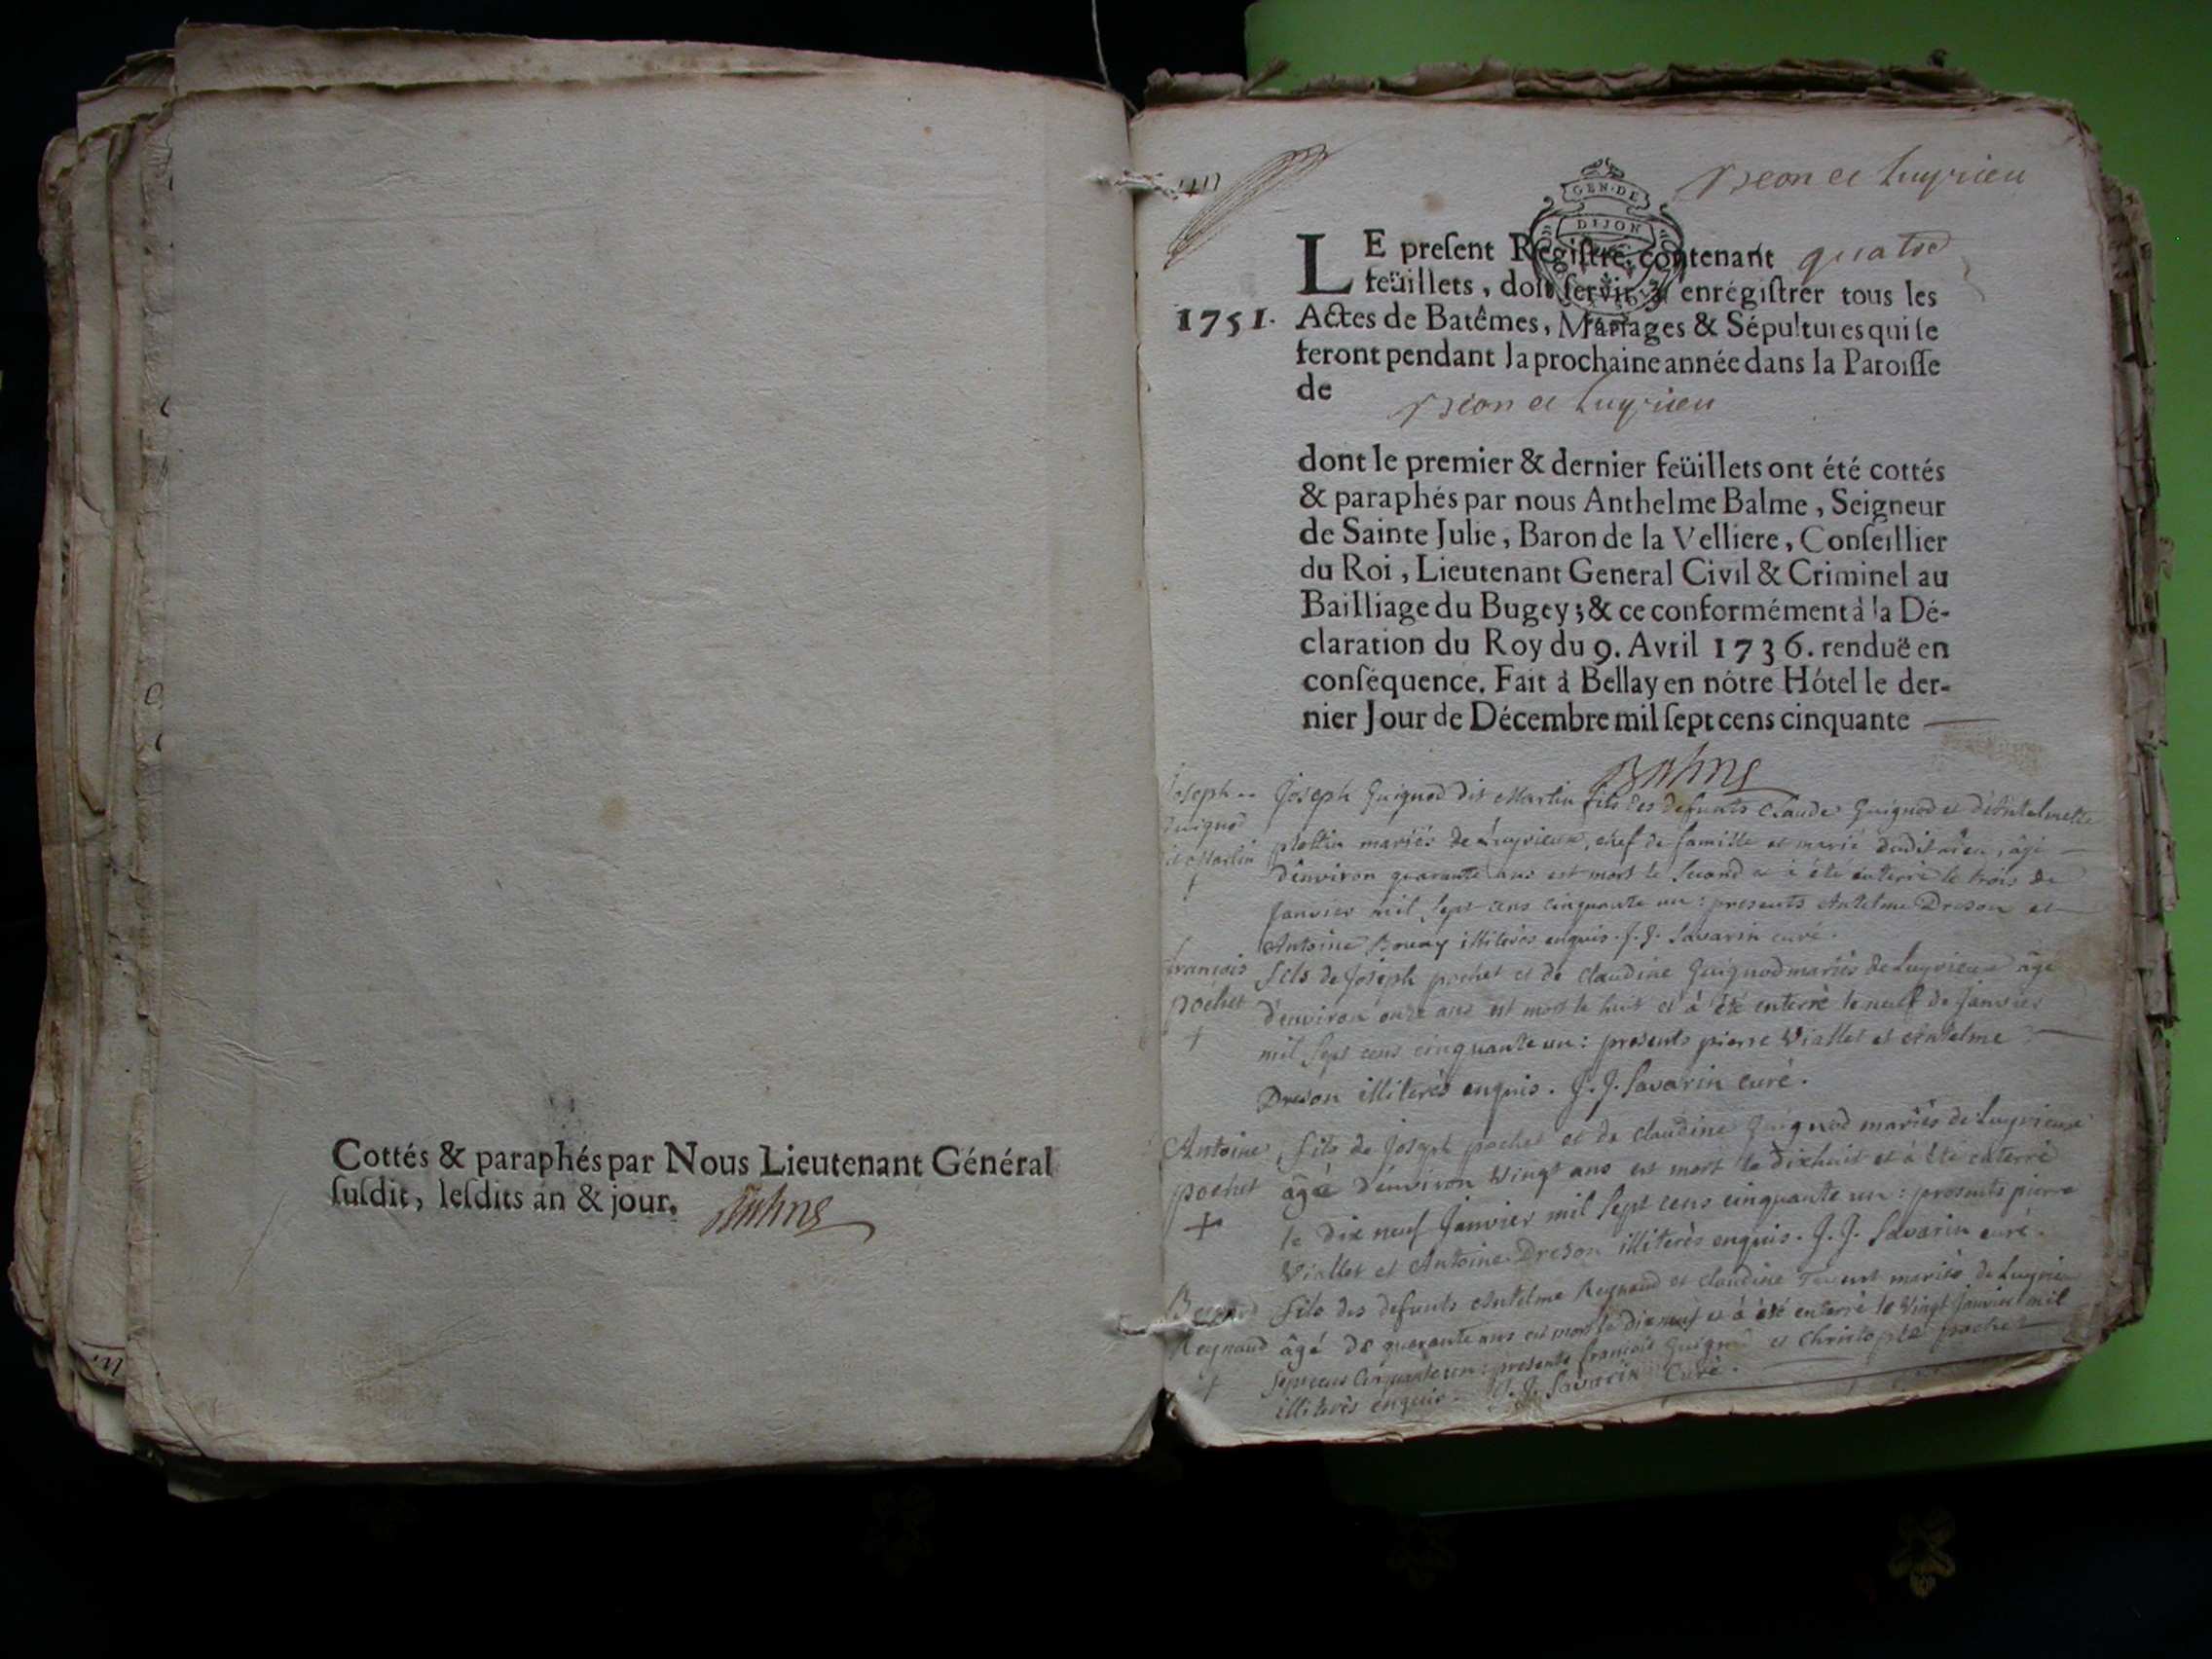 Cottés & paraphés par Nous Lieutenant Général
ſuſdit, leſdits an & jour.
Beon et Luyrieu
GEN·DE
DIJON
LE preſent Regiſtre, contenant quatre
feüillets, doit ſervir à enrégiſtrer tous les
1751. Actes de Batêmes, Mariages & Sépultures qui ſe
feront pendant la prochaine année dans la Paroiſſe
de Beon et Luyrieu
dont le premier & dernier feüillets ont été cottés
& paraphés par nous Anthelme Balme, Seigneur
de Sainte Julie, Baron de la Velliere, Conſeillier
du Roi, Lieutenant General Civil & Criminel au
Bailliage du Bugey; & ce conformément à la Dé-
claration du Roy du 9. Avril 1736. renduë en
conſéquence. Fait à Bellay en nôtre Hôtel le der-
nier Jour de Décembre mil ſept cens cinquante
Joseph Guignod dit Martin
Joseph Guignod dit Martin fils des defunts Claude Guignod et d'Antelmette
mariés de Luyrieux, chef de famille et marié dudit lieu, âgé
d'environ quarante ans est mort le second et à été enterré le trois de
Janvier mil sept cens cinquante un : presents Antelme Dreson et
Antoine illiterés enquis. J. J. Savarin curé.
François pochet +
fils de Joseph pochet et de Claudine Guignod mariés de Luyrieux âgé
d'environ onze ans est mort le huit et à été enterré le neuf de Janvier
mil sept cens cinquante un : presents pierre Viallet et Antelme
Dreson illiterés enquis. J. J. Savarin curé.
Antoine pochet +
fils de Joseph pochet et de Claudine Guignod mariés de Luyrieux
âgé d'environ vingt ans est mort le dixhuit et à été enterré
le dix neuf Janvier mil sept cens cinquante un : presents pierre
Viallet et Antoine Dreson illiterés enquis. J. J. Savarin curé.
Reynaud +
fils des defunts Antelme Reynaud et Claudine mariés de Luyrieu
âgé de quarante ans est mort le dixneuf et à été enterré le vingt Janvier mil
sept cens cinquante un : presents françois Guignod et Christophle pochet
illiterés enquis. J. J. Savarin Curé.